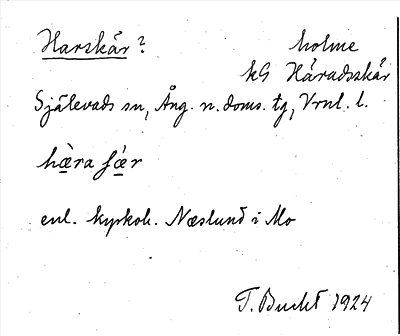 Harskär? holme
kG Häradsskär
Själevads sn, Ång. n. doms. tg, Vrnl. l.
hæ̀ra ʃǽr
enl. kyrkoh. Næslund i Mo
T. Bucht 1924